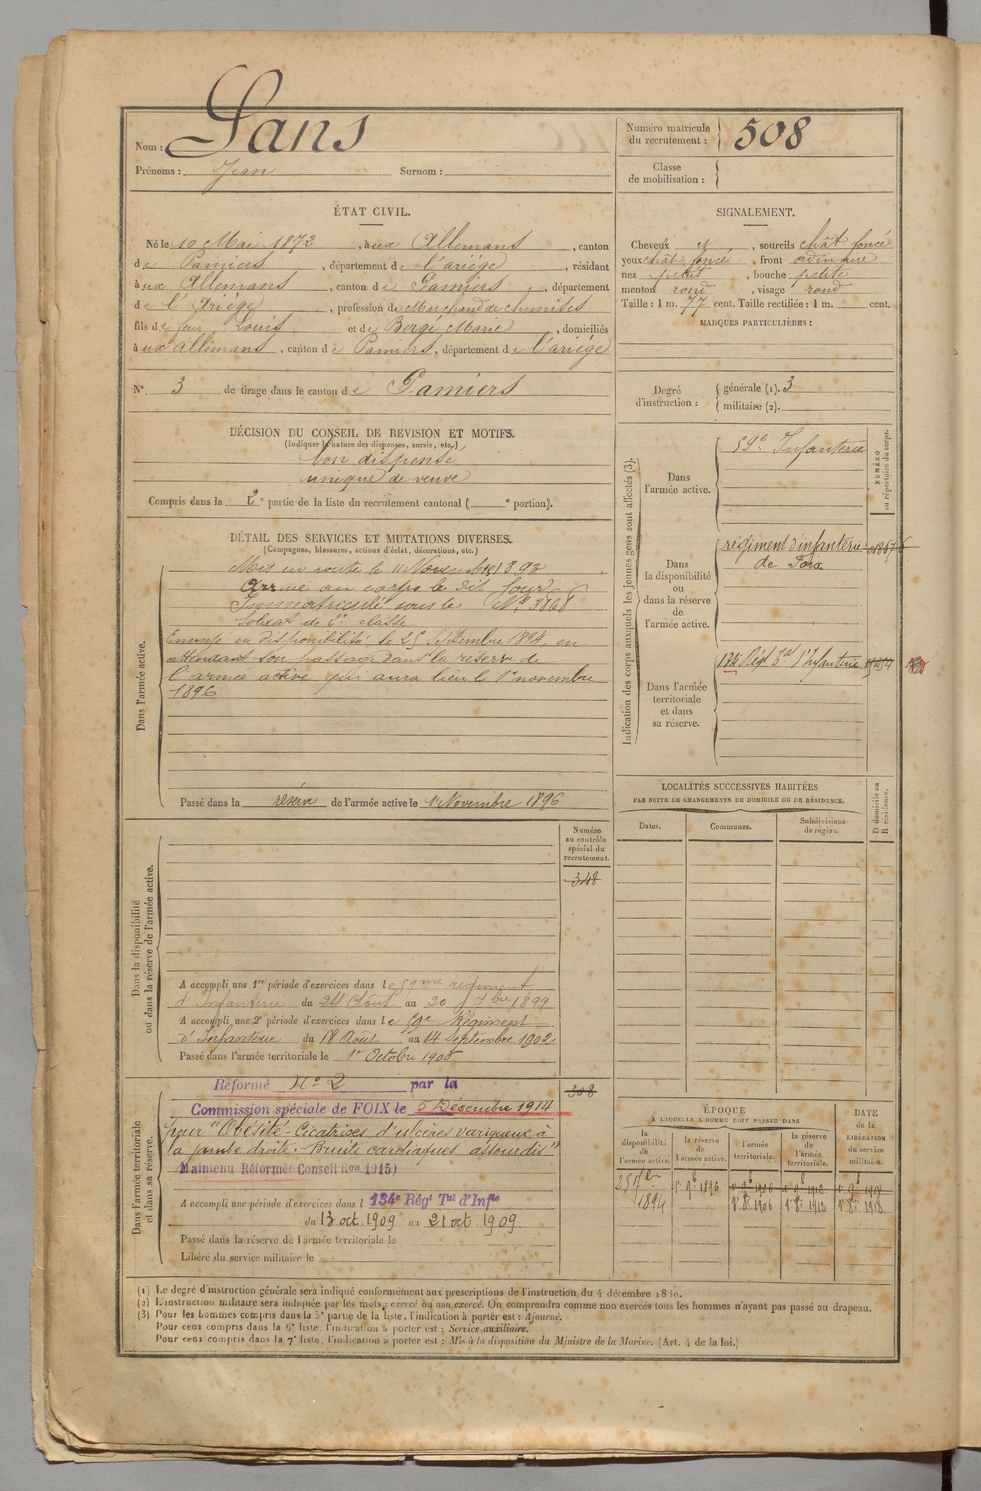 Nom : Sans
Prénoms : Jean Surnom :
Numéro matricule du recrutement : 508
Classe de mobilisation :
ÉTAT CIVIL.
Né le 10 Mai 1872, à ux Allemans, canton
de Pamiers, département de l'ariége, résidant
à ux Allemans, canton de Pamiers, département
de l'Ariége, profession de Marchand de chemises
fils de feu Louis et de Bergé Marie, domiciliés
à ux allemans, canton de Pamiers, département de l'ariége
N°. 3 de tirage dans le canton de Pamiers
SIGNALEMENT.
Cheveux et, sourcils chât foncé
yeux chât foncé, front ordinaire
nez petit, bouche petite
menton rond, visage rond
Taille : 1 m. 77 cent. Taille rectifiée : 1 m. cent.
MARQUES PARTICULIÈRES :
Degré d'instruction : générale (1). 3
militaire (2).
DÉCISION DU CONSEIL DE REVISION ET MOTIFS.
(Indiquer la nature des dispenses, sursis, etc.)
bon dispensé
unique de veuve
Compris dans la 2e partie de la liste du recrutement cantonal ( e portion).
DÉTAIL DES SERVICES ET MUTATIONS DIVERSES.
(Campagnes, blessures, actions d'éclat, décorations, etc.)
Dans l'armée active.
Mis en route le 11 Novembre 1893
Arrivé au corps le dit jour
Immatriculé sous le N° 3868
Soldat de 2e classe
Envoyé en disponibilité le 25 Septembre 1894, en
attendant son passage dans la réserve de
l'armée active qui aura lieu le 1er novembre
1896
Passé dans la réserve de l'armée active le 1er Novembre 1896
Indication des corps auxquels les jeunes gens sont affectés (3).
NUMÉRO au répertoire du corps.
Dans l'armée active.
59e Infanterie
Dans la disponibilité ou dans la réserve de l'armée active.
régiment d'infanterie
de Foix
Dans l'armée territoriale et dans sa réserve.
134 Régt Tal d'Infanterie
LOCALITÉS SUCCESSIVES HABITÉES
PAR SUITE DE CHANGEMENTS DE DOMICILE OU DE RÉSIDENCE.
Dates. Communes. Subdivisions de région. D domicile ou R résidence.
Dans la disponibilité ou dans la réserve de l'armée active.
Numéro au contrôle spécial du recrutement.
348
A accompli une 1re période d'exercices dans le 59me régiment
d'Infanterie du 24 Août au 20 7bre 1899
A accompli une 2e période d'exercices dans le 59e Régiment
d'Infanterie du 18 Août au 14 Septembre 1902
Passé dans l'armée territoriale le 1er Octobre 1906
Dans l'armée territoriale et dans sa réserve.
508
Réformé n° 2 par la
Commission spéciale de FOIX le 5 Décembre 1914
pour "Obésité - Cicatrices d'ulcères variqueux à
la jambe droite. Bruits cardiaques assourdis"
(Maintenu Réformé Conseil Ron 1915)
A accompli une période d'exercices dans l 134e Régt Tal d'Infie
du 13 oct. 1909 au 21 oct. 1909
Passé dans la réserve de l'armée territoriale le
Libéré du service militaire le
ÉPOQUE
A LAQUELLE L'HOMME DOIT PASSER DANS
DATE DE LA LIBÉRATION DU SERVICE MILITAIRE.
la disponibilité de l'armée active. la réserve de l'armée active. l'armée territoriale. la réserve de l'armée territoriale.
25 7bre 1894 1er 9b 1896 1er 9b 1906 1er 9b 1912 1er 9b 1918
1er 8bre 1906 1er 8bre 1912 1er 8bre 1918
(1) Le degré d'instruction générale sera indiqué conformément aux prescriptions de l'instruction du 4 décembre 1889.
(2) L'instruction militaire sera indiquée par les mots : exercé ou non exercé. On comprendra comme non exercés tous les hommes n'ayant pas passé au drapeau.
(3) Pour les hommes compris dans la 5e partie de la liste, l'indication à porter est : Ajourné.
Pour ceux compris dans la 6e liste, l'indication à porter est : Service auxiliaire.
Pour ceux compris dans la 7e liste, l'indication à porter est : Mis à la disposition du Ministre de la Marine. (Art. 4 de la loi.)